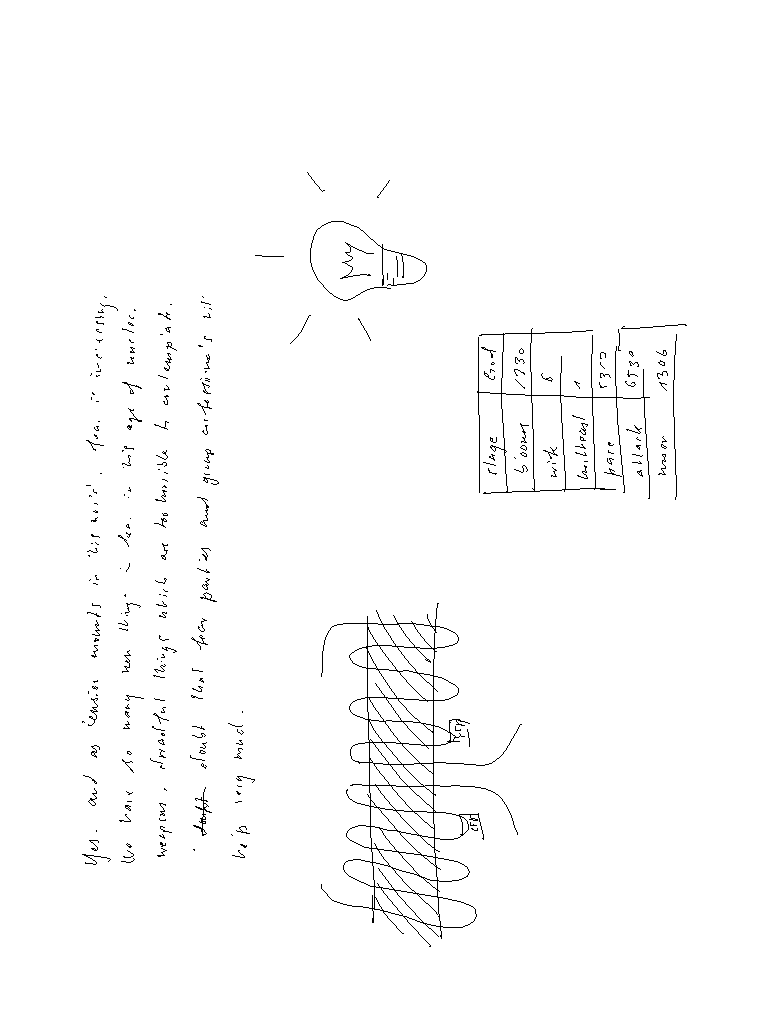 Yes. and as tension mounts in this world, fear is increasing.
We have so many new things to fear in this age of nuclear
weapons, dreadful things which are too horrible to contemplate.
I doubt that fear parties and group confessional's will
help very much.
stage God
bloom 1730
with 6
1
pace 5310
attack 6530
moon 1306